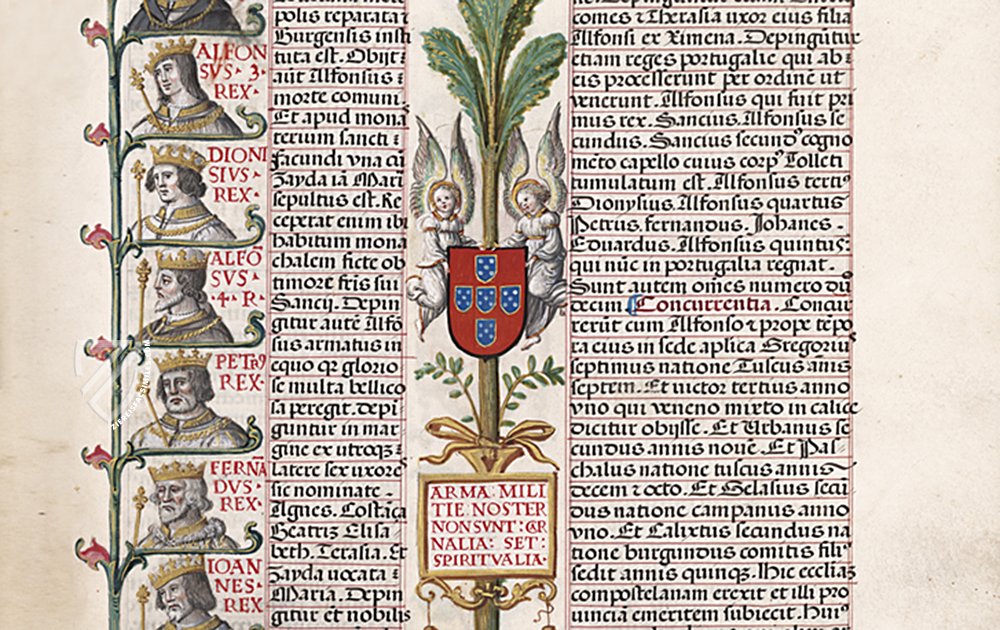 ALFON
SVS · 3 ·
REX ·
DIONI
SIVS ·
REX ·
ALFŌ
SVS ·
· 4 · R ·
PETRꝰ
REX ·
FERNĀ
DVS ·
REX ·
IOAN
NES ·
REX
polis reparata ⁊
Burgensis insti
tuta est. Obijt ⁊
aūt Alfonsus ⁊
morte comuni
Et apud mona
terium sancti ⁊
facundi vna cū
Zayda iā Mari
sepultus est. Re
ceperat enim ibi
habitum mona
chalem ficte ob
timore fris sui
Sancij. Depin
gitur autē Alfō
sus armatus in
equo qꝛ glorio
se multa bellico
sa peregit. depī
guntur in mar
gine ex utroqꝫ
latere sex uxores
sic nominate .
Agnes. Costāca
Beatrix Elisa
beth. Terasia. Et
Zayda vocata ⁊
Maria. Depin
gitur et nobilis
ARMA · MILI
TIE NOSTER
NON SVNT : CAR
NALIA : SET :
SPIRITVALIA ·
comes ⁊ Therasia uxor eius filia
Alfonsi ex Ximena. Depingūtur
etiam reges portugalie qui ab ⁊
eis processerunt per ordinē ut
venerunt. Alfonsus qui fuit pri
mus rex. Sancius. Alfonsus se
cundus. Sancius secundꝰ cogno
mēto capello cuius corpꝰ Tolleti
tumulatum est. Alfonsus tertiꝰ
Dionysius. Alfonsus quartus
Petrus. fernandus. Johanes .
Eduardus. Alfonsus quintus ⁊
qui nūc in portugalia regnat .
Sunt autem om̄es numero duo
decim Concurrentia. Concur
rerūt cum Alfonso ⁊ prope tēpo
ra eius in sede aplica Gregoriꝰ
septimus natione Tuscus anīs
septem. Et victor tertius anno
vno qui veneno mixto in calice
dicitur obijsse. Et Urbanus se
cundus annis nouē. Et Pas
chalus natione tuscus annis
decem ⁊ octo. Et Gelasius secū
dus natione campanus anno
vno. Et Calixtus secundus na
tione burgundus comitis filiꝰ
sedit annis quinqꝫ. Hic eccliaꝫ
compostelanam erexit et illi pro
uinciam emeritem subiecit. Huiꝰ